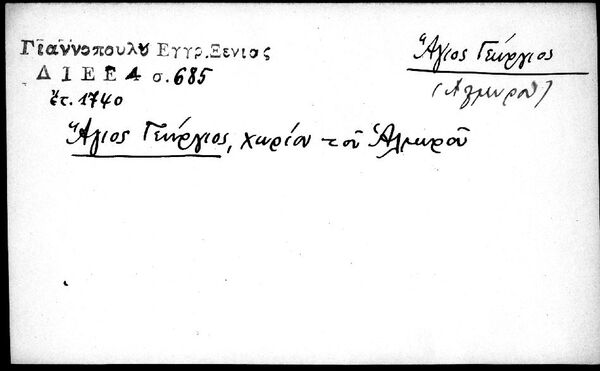 Γιαννοπουλου Εγγρ. Ξενιας
ΔΙΕΕ 4 σ. 685
ἔτ. 1740
Ἅγιος Γεώργιος
(Ἁλμυροῦ)
Ἅγιος Γεώργιος, χωρίον τοῦ Ἁλμυροῦ